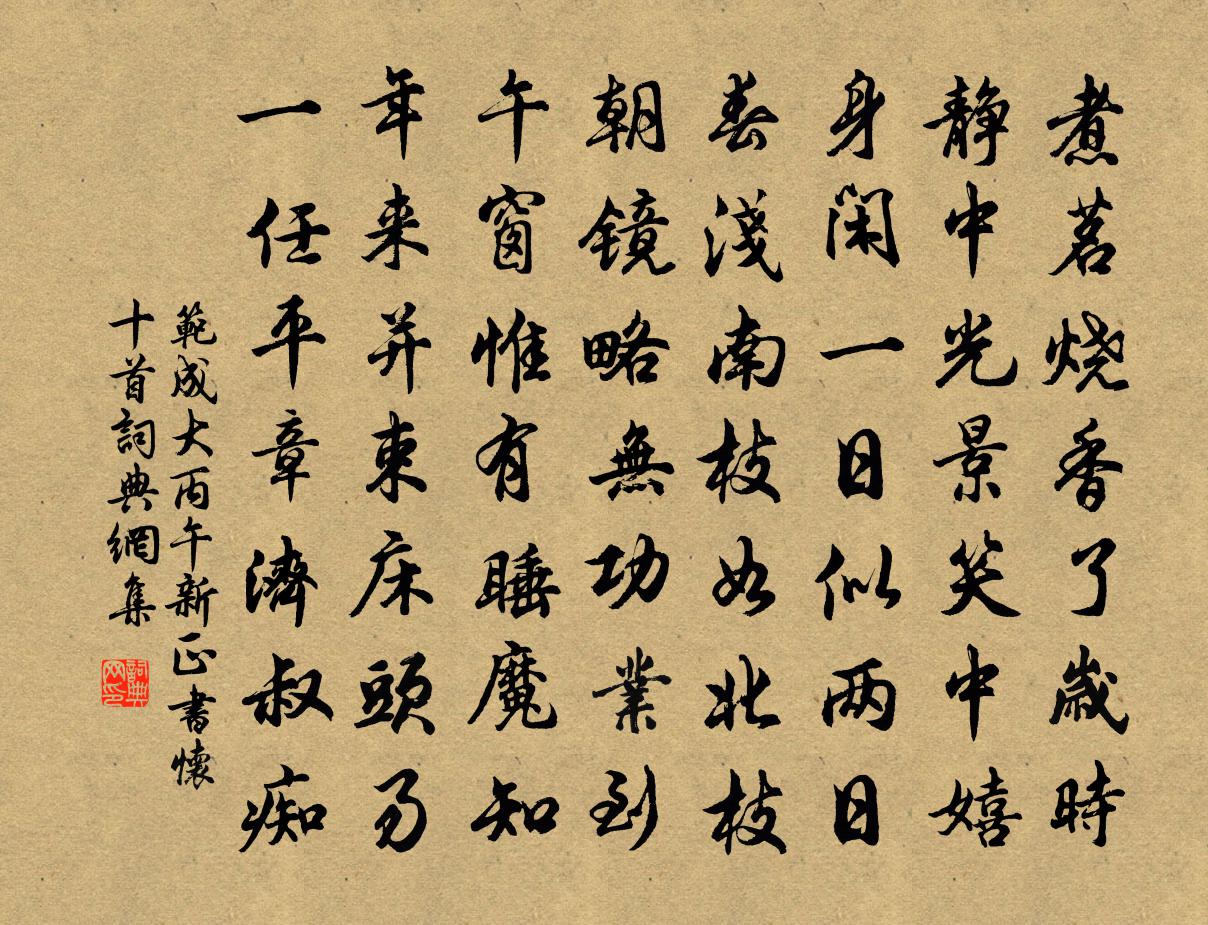 煮茗烧香了歲時
静中光景笑中嬉
身闲一日似两日
春淺南枝如北枝
朝镜略無功業到
午窗惟有睡魔知
年来并束床頭易
一任平章濟叔痴
範成大丙午新正書懷
十首詞典網集
詞典网印